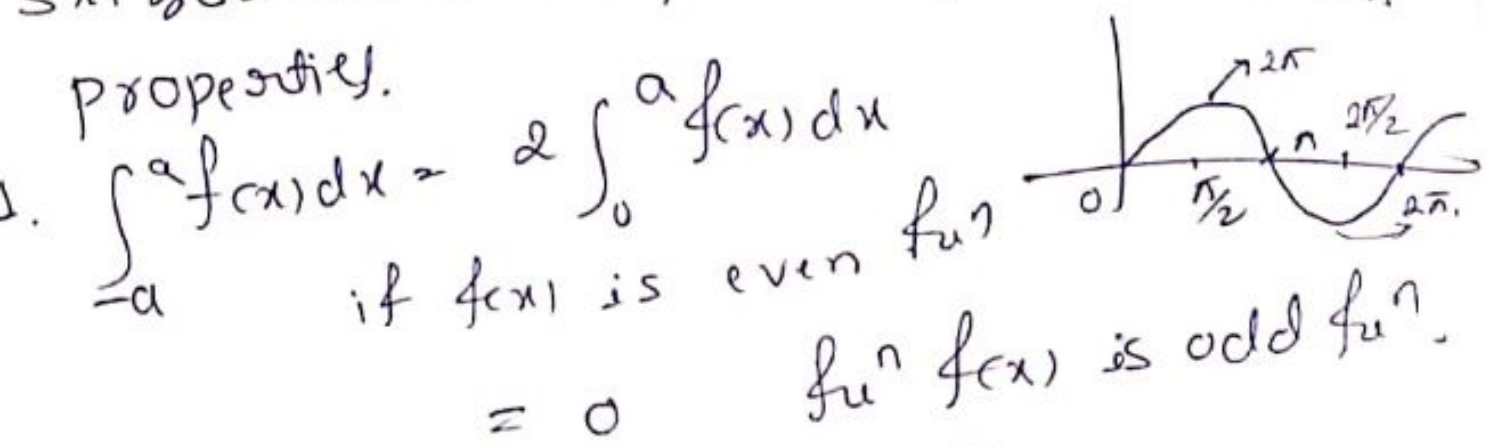 properties.
1. ∫_{-a}^{a} f(x) dx = 2 ∫_{0}^{a} f(x) dx
if f(x) is even fuⁿ
= 0 fuⁿ f(x) is odd fuⁿ.
2π
2π/2
π
0
π/2
2π.